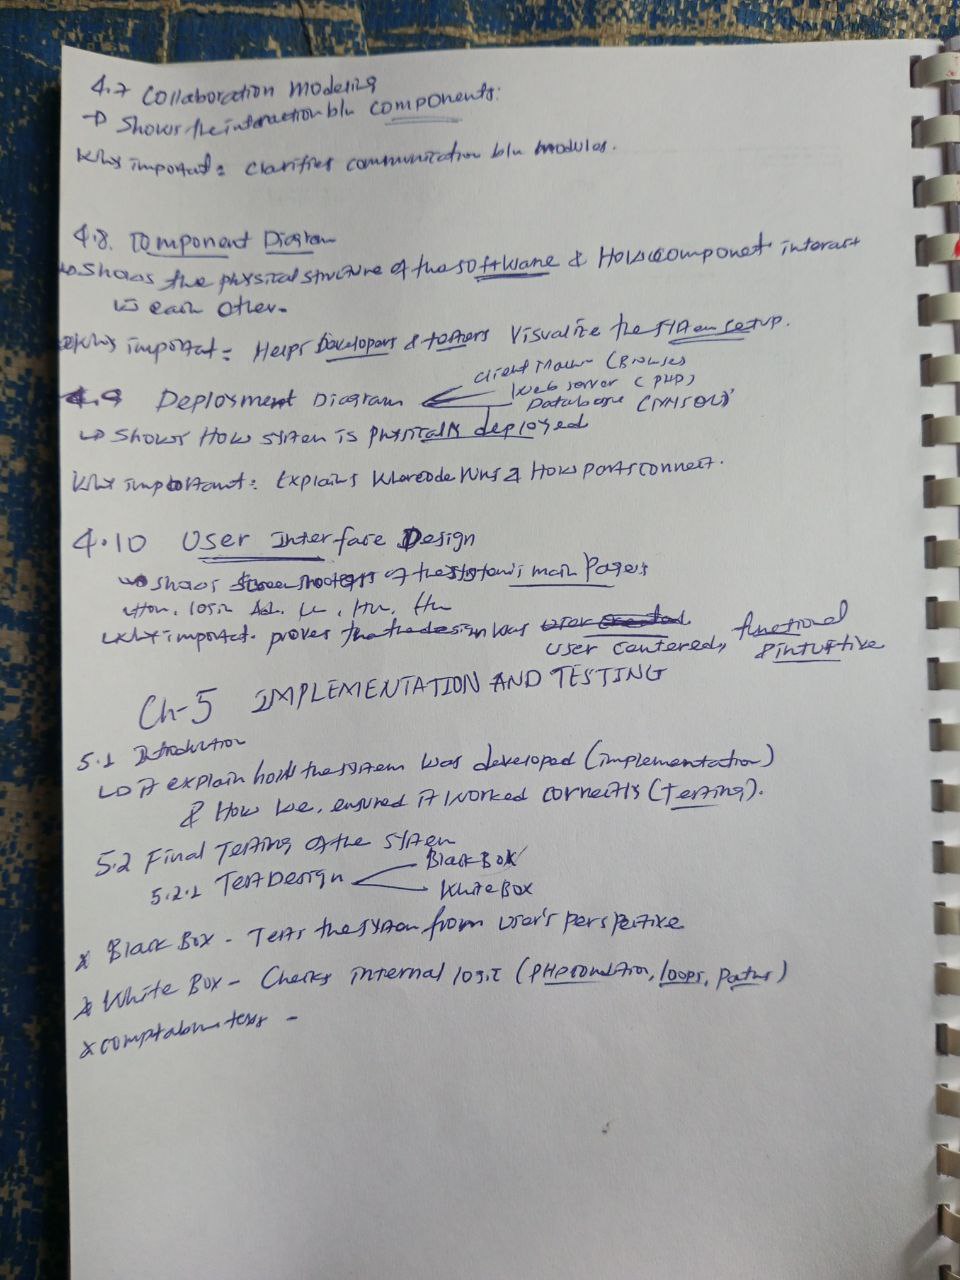 4.7 Collaboration Modeling
→ Shows the interaction b/w components:
Why important: Clarifies communication b/w modules.
4.8. Component Diagram
↳ Shows the physical structure of the software & How component interact
↳ each other.
Why important: Helps Developers & testers Visualize the system setup.
4.9 Deployment Diagram
Client (Browser)
Web server (PHP)
Database (MYSQL)
↳ Shows How system is physically deployed
Why important: Explains Where code runs & How parts connect.
4.10 User Interface Design
↳ shows of the system's main Pages
login
↳ Why import. proves that the design was
user centered, functional
& intuitive
Ch-5 IMPLEMENTATION AND TESTING
5.1 Introduction
↳ It explain how the system was developed (implementation)
& How we, ensured it worked correctly (Testing).
5.2 Final Testing of the system
5.2.1 Test Design
Black Box
White Box
x Black Box - Tests the system from User's perspective
x White Box - Checks internal logic (PHP condition, loops, paths)
x